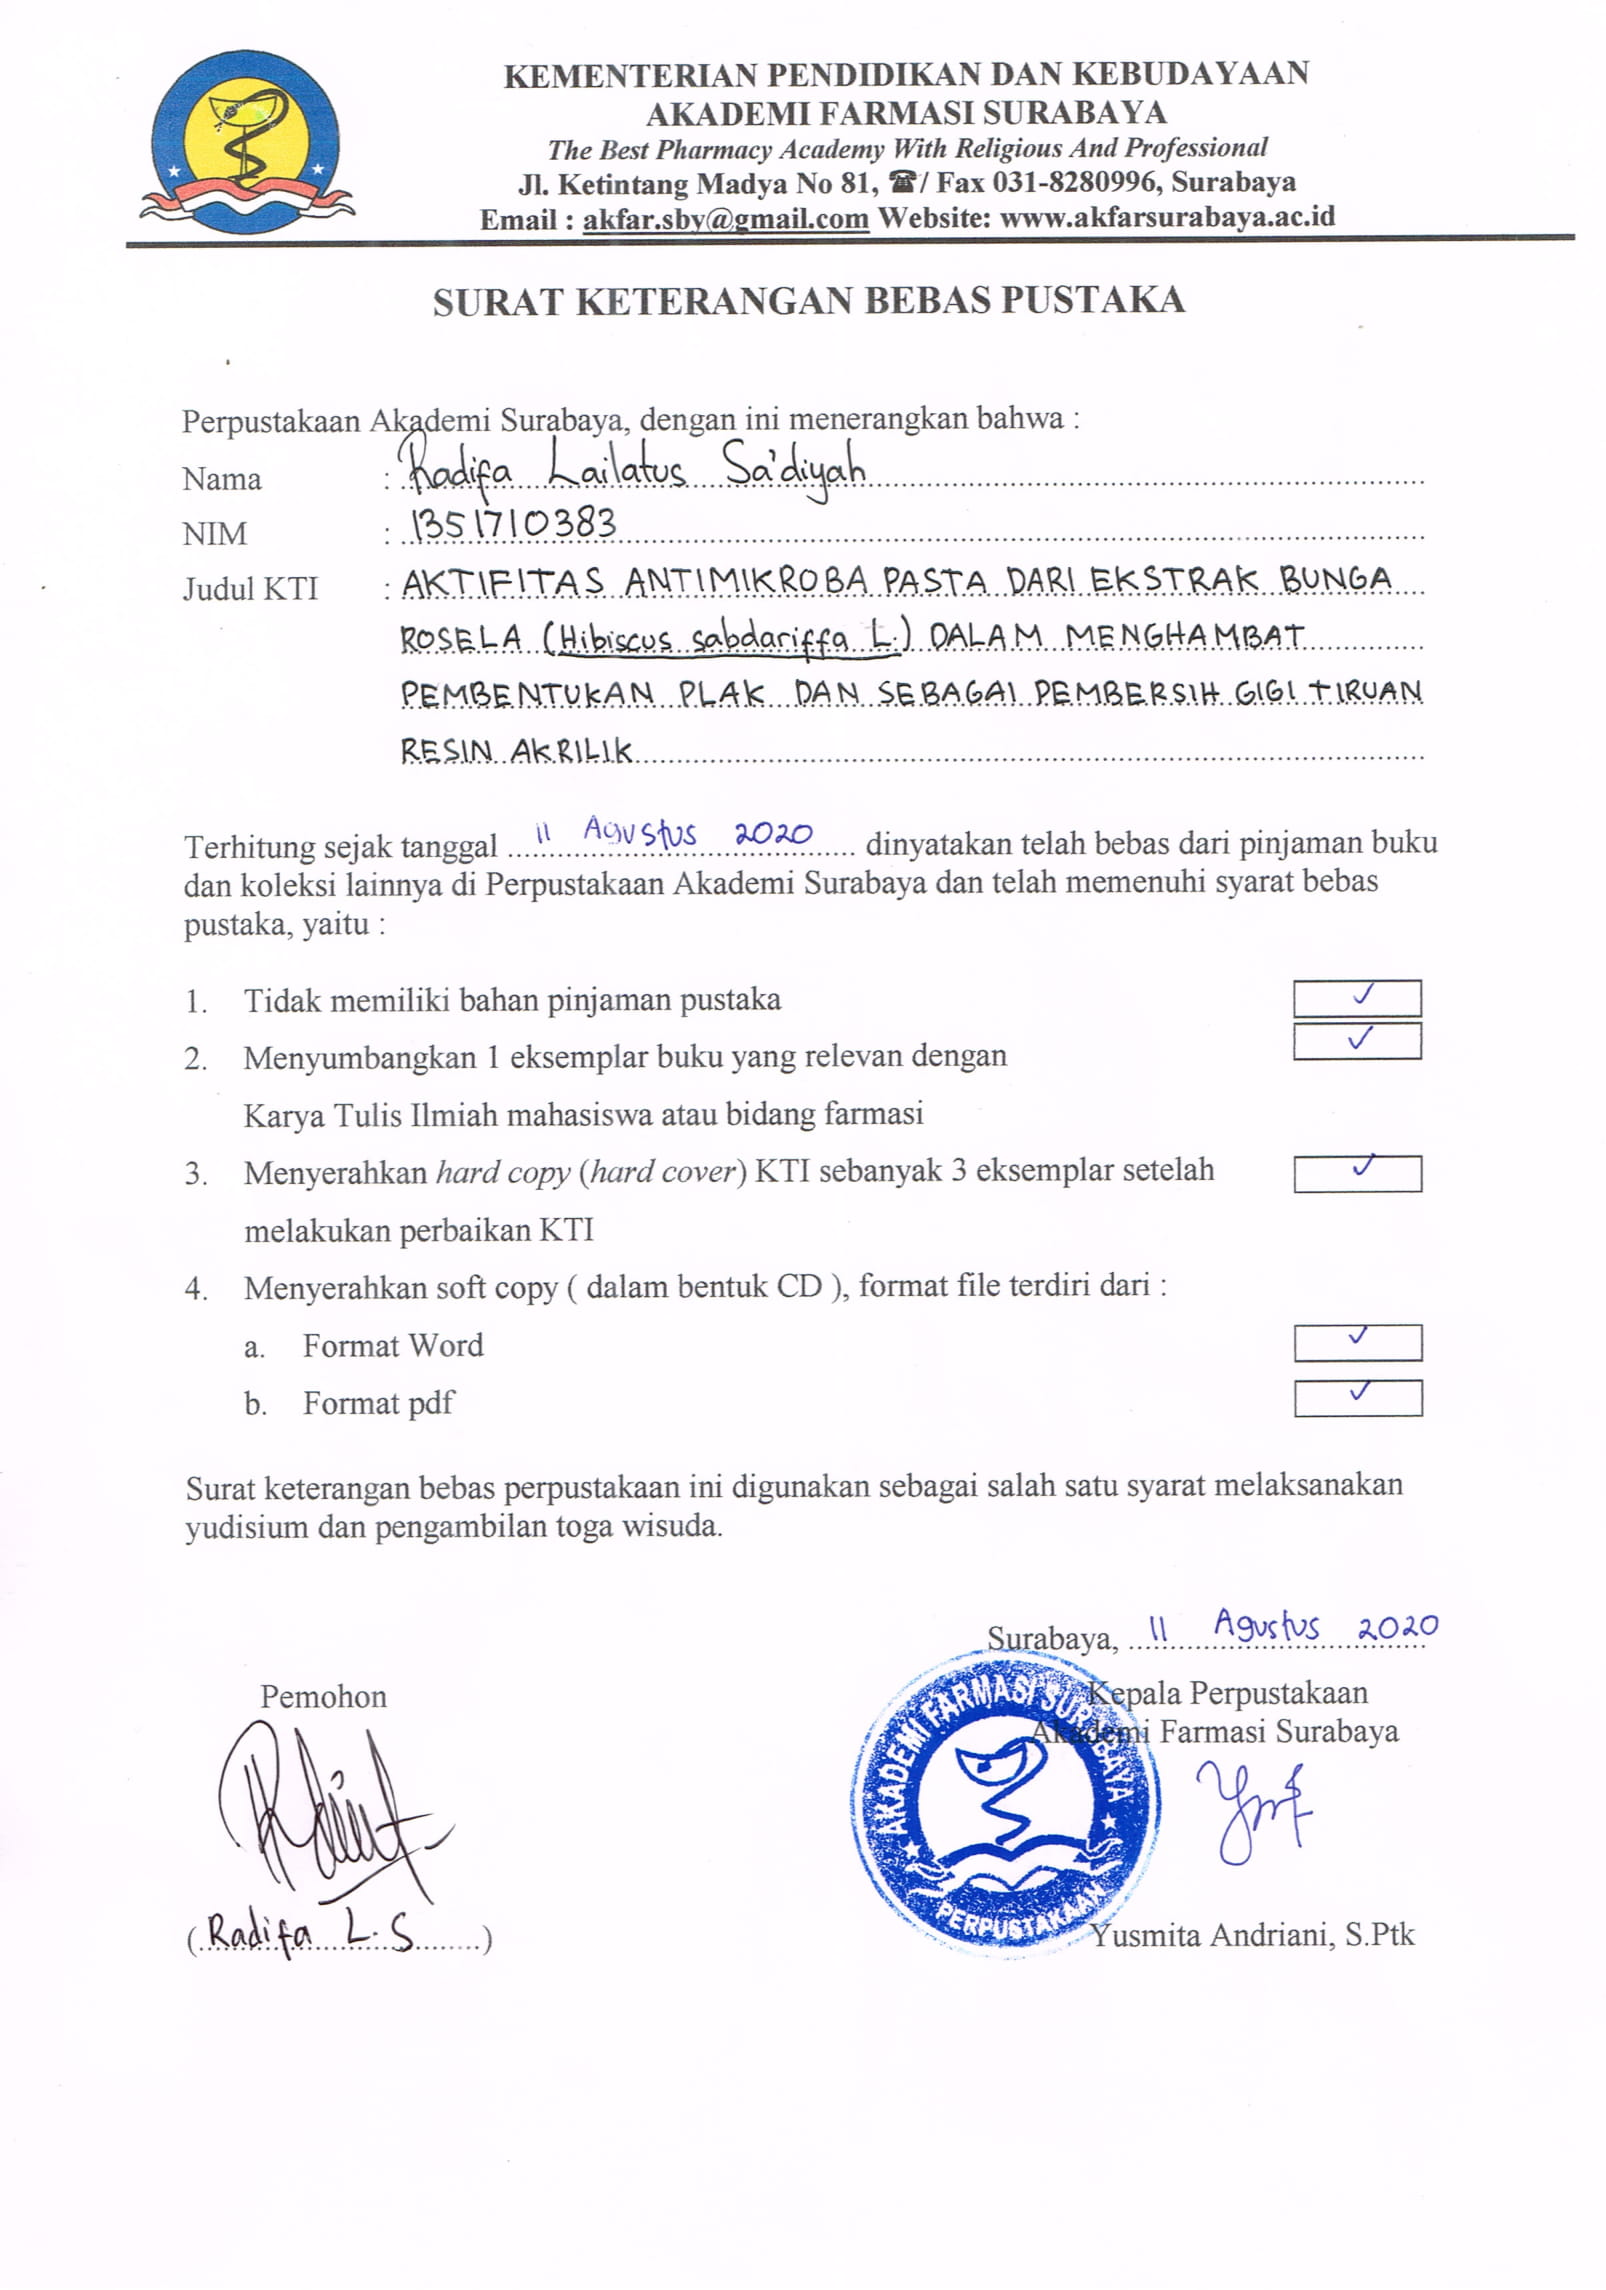 KEMENTERIAN PENDIDIKAN DAN KEBUDAYAAN
AKADEMI FARMASI SURABAYA
The Best Pharmacy Academy With Religious And Professional
Jl. Ketintang Madya No 81, ☎/ Fax 031-8280996, Surabaya
Email : akfar.sby@gmail.com Website: www.akfarsurabaya.ac.id
SURAT KETERANGAN BEBAS PUSTAKA
Perpustakaan Akademi Surabaya, dengan ini menerangkan bahwa :
Nama : Radifa Lailatus Sa'diyah
NIM : 1351710383
Judul KTI : AKTIFITAS ANTIMIKROBA PASTA DARI EKSTRAK BUNGA
ROSELA (Hibiscus sabdariffa L.) DALAM MENGHAMBAT
PEMBENTUKAN PLAK DAN SEBAGAI PEMBERSIH GIGI TIRUAN
RESIN AKRILIK
Terhitung sejak tanggal 11 Agustus 2020 dinyatakan telah bebas dari pinjaman buku
dan koleksi lainnya di Perpustakaan Akademi Surabaya dan telah memenuhi syarat bebas
pustaka, yaitu :
1. Tidak memiliki bahan pinjaman pustaka ✓
2. Menyumbangkan 1 eksemplar buku yang relevan dengan ✓
Karya Tulis Ilmiah mahasiswa atau bidang farmasi
3. Menyerahkan hard copy (hard cover) KTI sebanyak 3 eksemplar setelah ✓
melakukan perbaikan KTI
4. Menyerahkan soft copy ( dalam bentuk CD ), format file terdiri dari :
a. Format Word ✓
b. Format pdf ✓
Surat keterangan bebas perpustakaan ini digunakan sebagai salah satu syarat melaksanakan
yudisium dan pengambilan toga wisuda.
Surabaya, 11 Agustus 2020
Pemohon
Kepala Perpustakaan
Akademi Farmasi Surabaya
AKADEMI FARMASI SURABAYA
PERPUSTAKAAN
(Radifa L.S)
Yusmita Andriani, S.Ptk